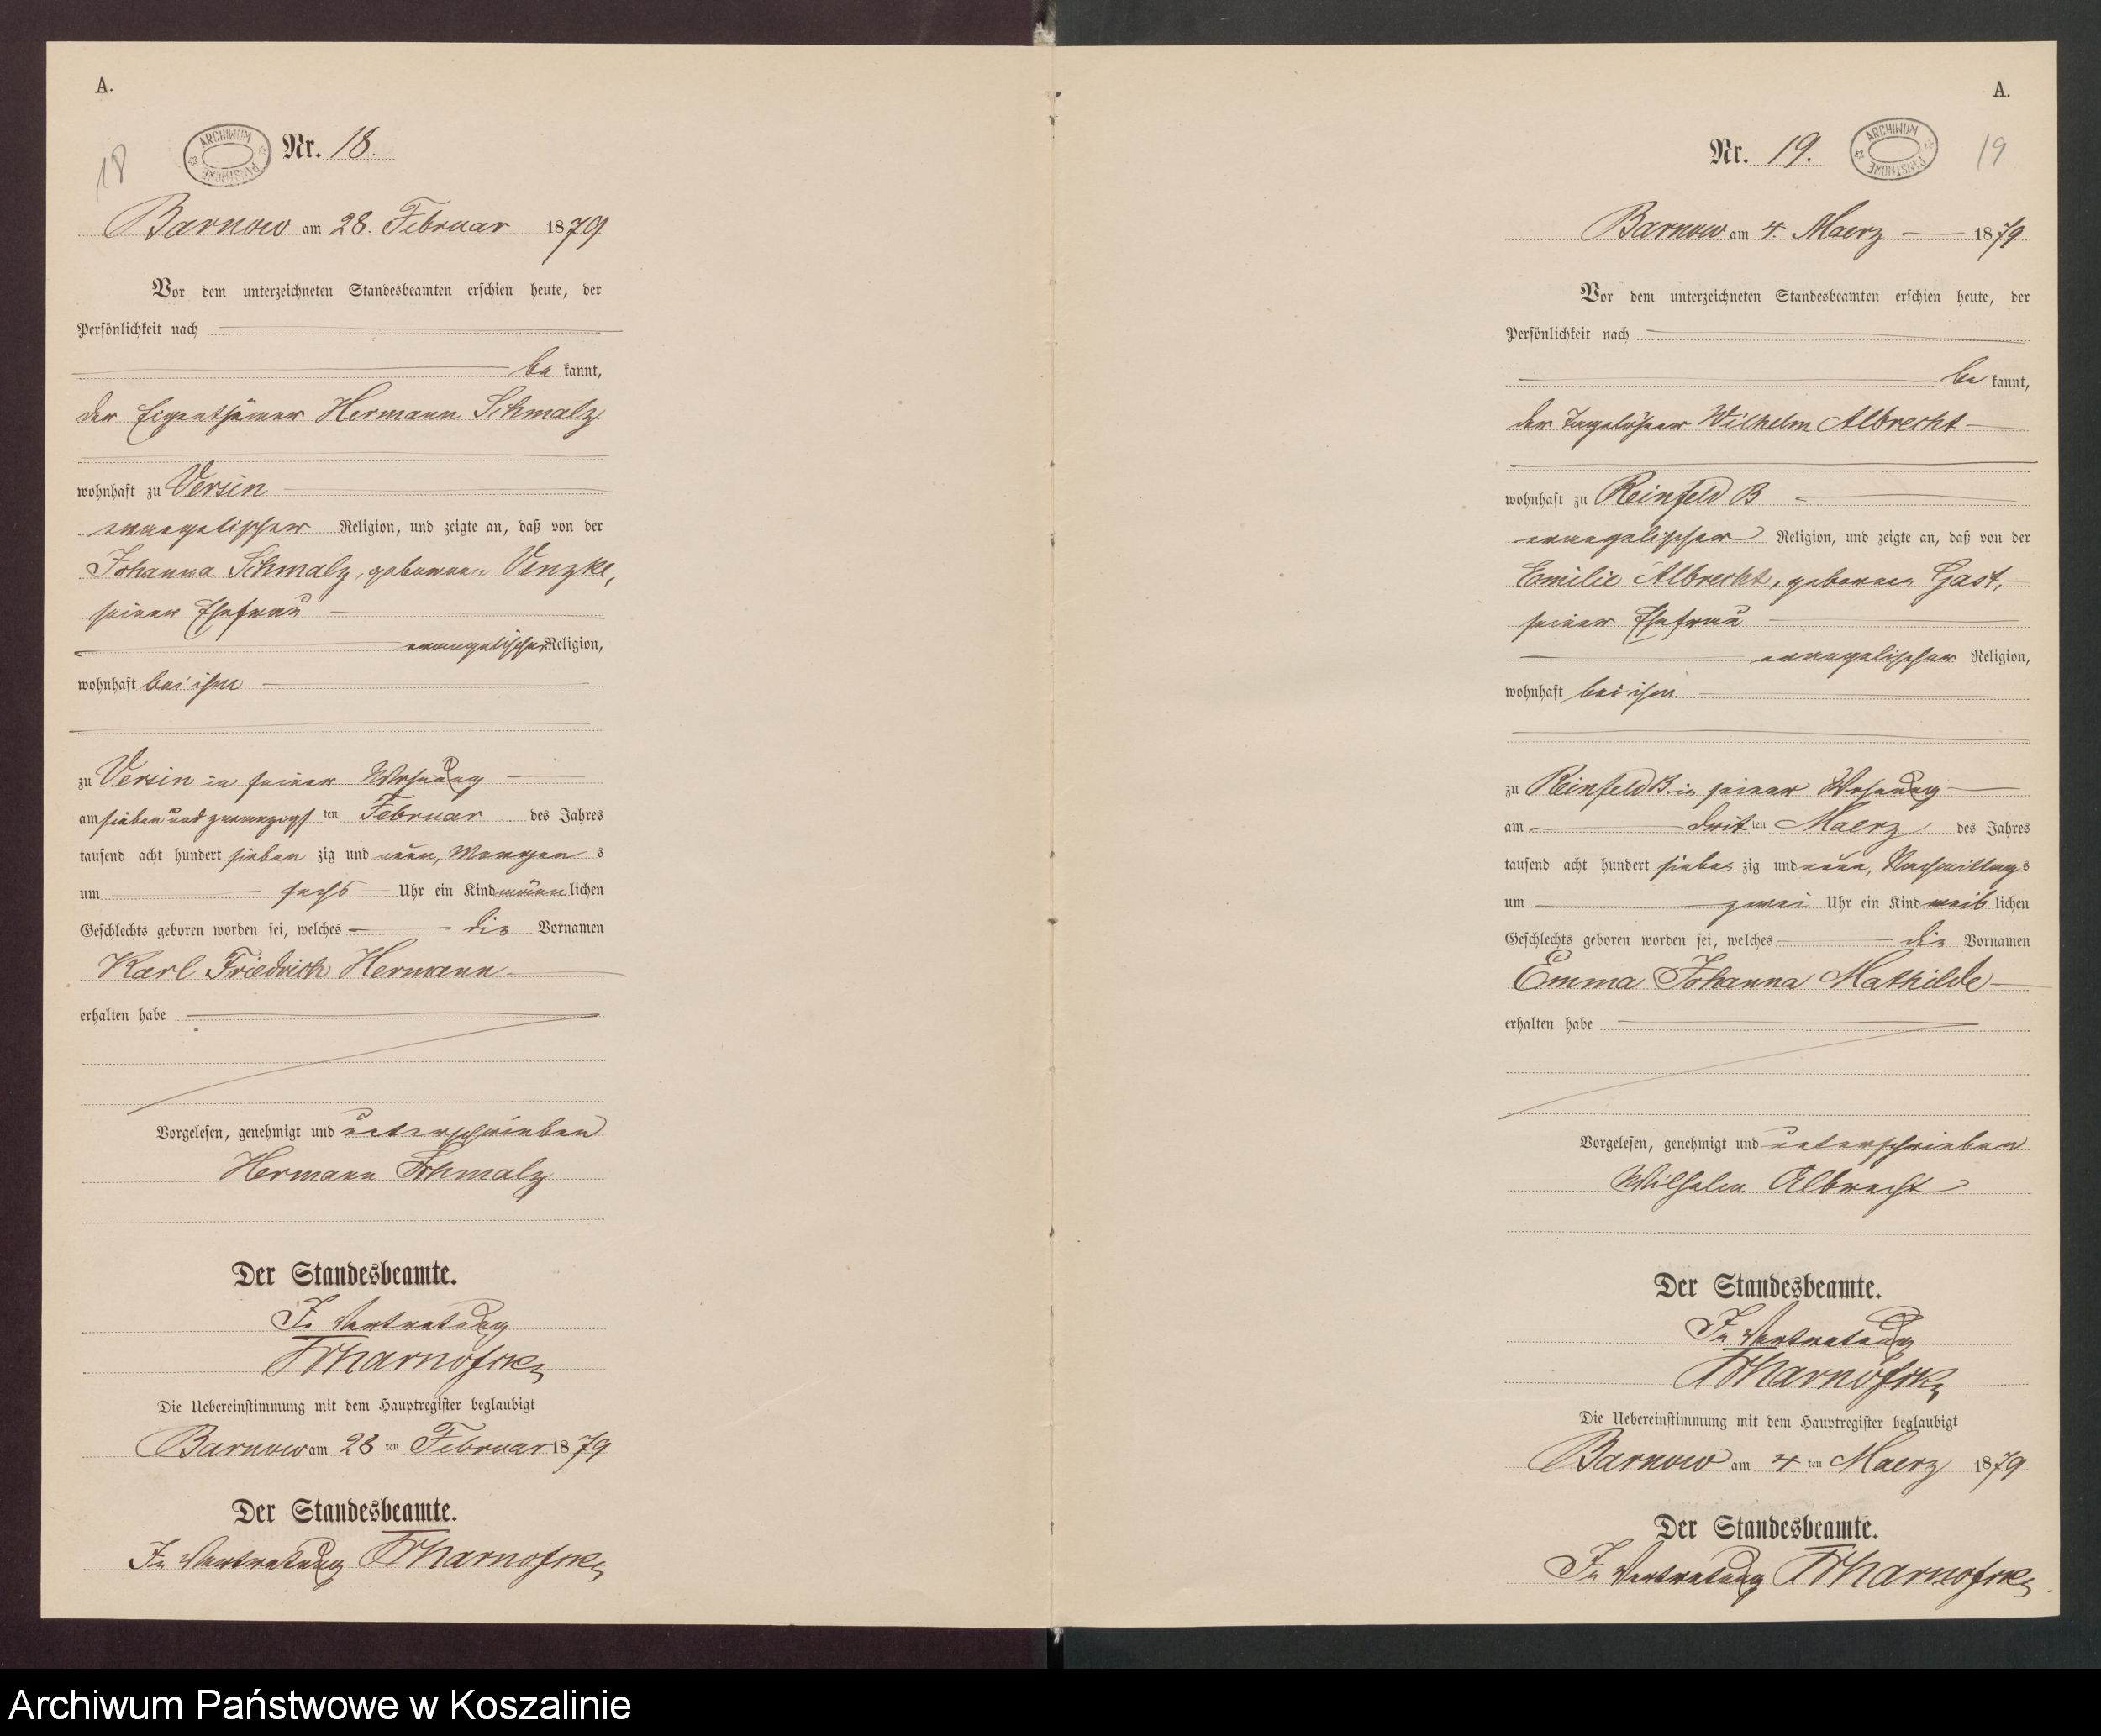 A.
18
ARCHIWUM PAŃSTWOWE
Nr. 18.
Barnow am 28. Februar 1879
Vor dem unterzeichneten Standesbeamten erschien heute, der
Persönlichkeit nach
be kannt,
der Eigenthümer Hermann Schmalz
wohnhaft zu Versin
evangelischer Religion, und zeigte an, daß von der
Johanna Schmalz, geborenen Venzke,
seiner Ehefrau
evangelischer Religion,
wohnhaft bei ihm
zu Versin in seiner Wohnung
am sieben und zwanzigs ten Februar des Jahres
tausend acht hundert sieben zig und neun, Morgen s
um sechs Uhr ein Kind männ lichen
Geschlechts geboren worden sei, welches die Vornamen
Karl Friedrich Hermann
erhalten habe
Vorgelesen, genehmigt und unterschrieben
Hermann Schmalz
Der Standesbeamte.
In Vertretung
Die Uebereinstimmung mit dem Hauptregister beglaubigt
Barnow am 28 ten Februar 1879
Der Standesbeamte.
In Vertretung
A.
Nr. 19.
ARCHIWUM PAŃSTWOWE
19
Barnow am 4. Maerz 1879
Vor dem unterzeichneten Standesbeamten erschien heute, der
Persönlichkeit nach
be kannt,
der Tagelöhner Wilhelm Albrecht
wohnhaft zu Reinfeld B
evangelischer Religion, und zeigte an, daß von der
Emilie Albrecht, geborenen Gast,
seiner Ehefrau
evangelischer Religion,
wohnhaft bei ihm
zu Reinfeld B. in seiner Wohnung
am drit ten Maerz des Jahres
tausend acht hundert sieben zig und neun, Nachmittag s
um zwei Uhr ein Kind weib lichen
Geschlechts geboren worden sei, welches die Vornamen
Emma Johanna Mathilde
erhalten habe
Vorgelesen, genehmigt und unterschrieben
Wilhelm Albrecht
Der Standesbeamte.
In Vertretung
Die Uebereinstimmung mit dem Hauptregister beglaubigt
Barnow am 4 ten Maerz 1879
Der Standesbeamte.
In Vertretung
Archiwum Państwowe w Koszalinie